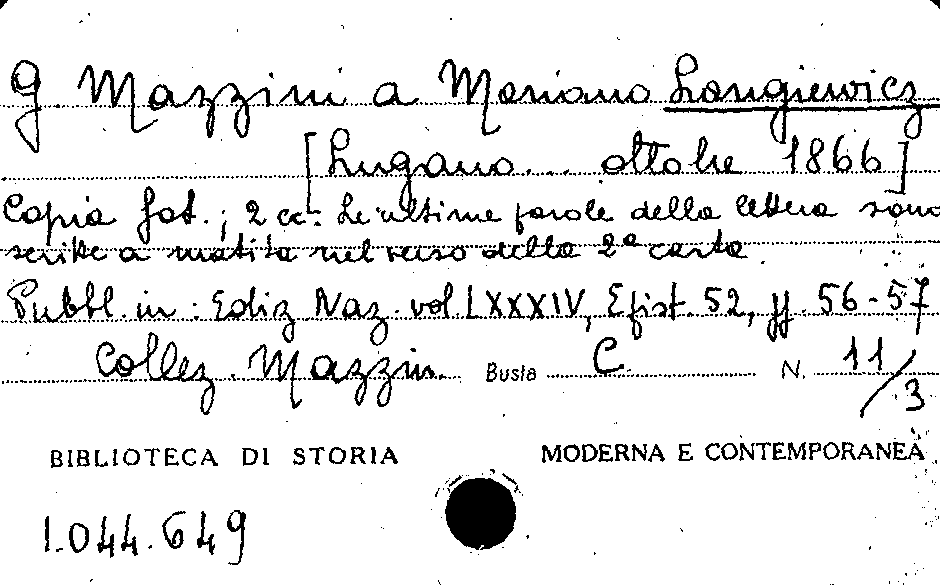 G. Mazzini a Mariano Langiewicz
[Lugano... ottobre 1866]
Copia fot.; 2 cc. Le ultime parole della lettera sono
scritte a matita nel verso della 2ª carta.
Pubbl. in: Ediz. Naz. vol. LXXXIV, Epist. 52, pp. 56-57
Collez. Mazzin. Busta C N. 11/3
BIBLIOTECA DI STORIA MODERNA E CONTEMPORANEA
1.044.649